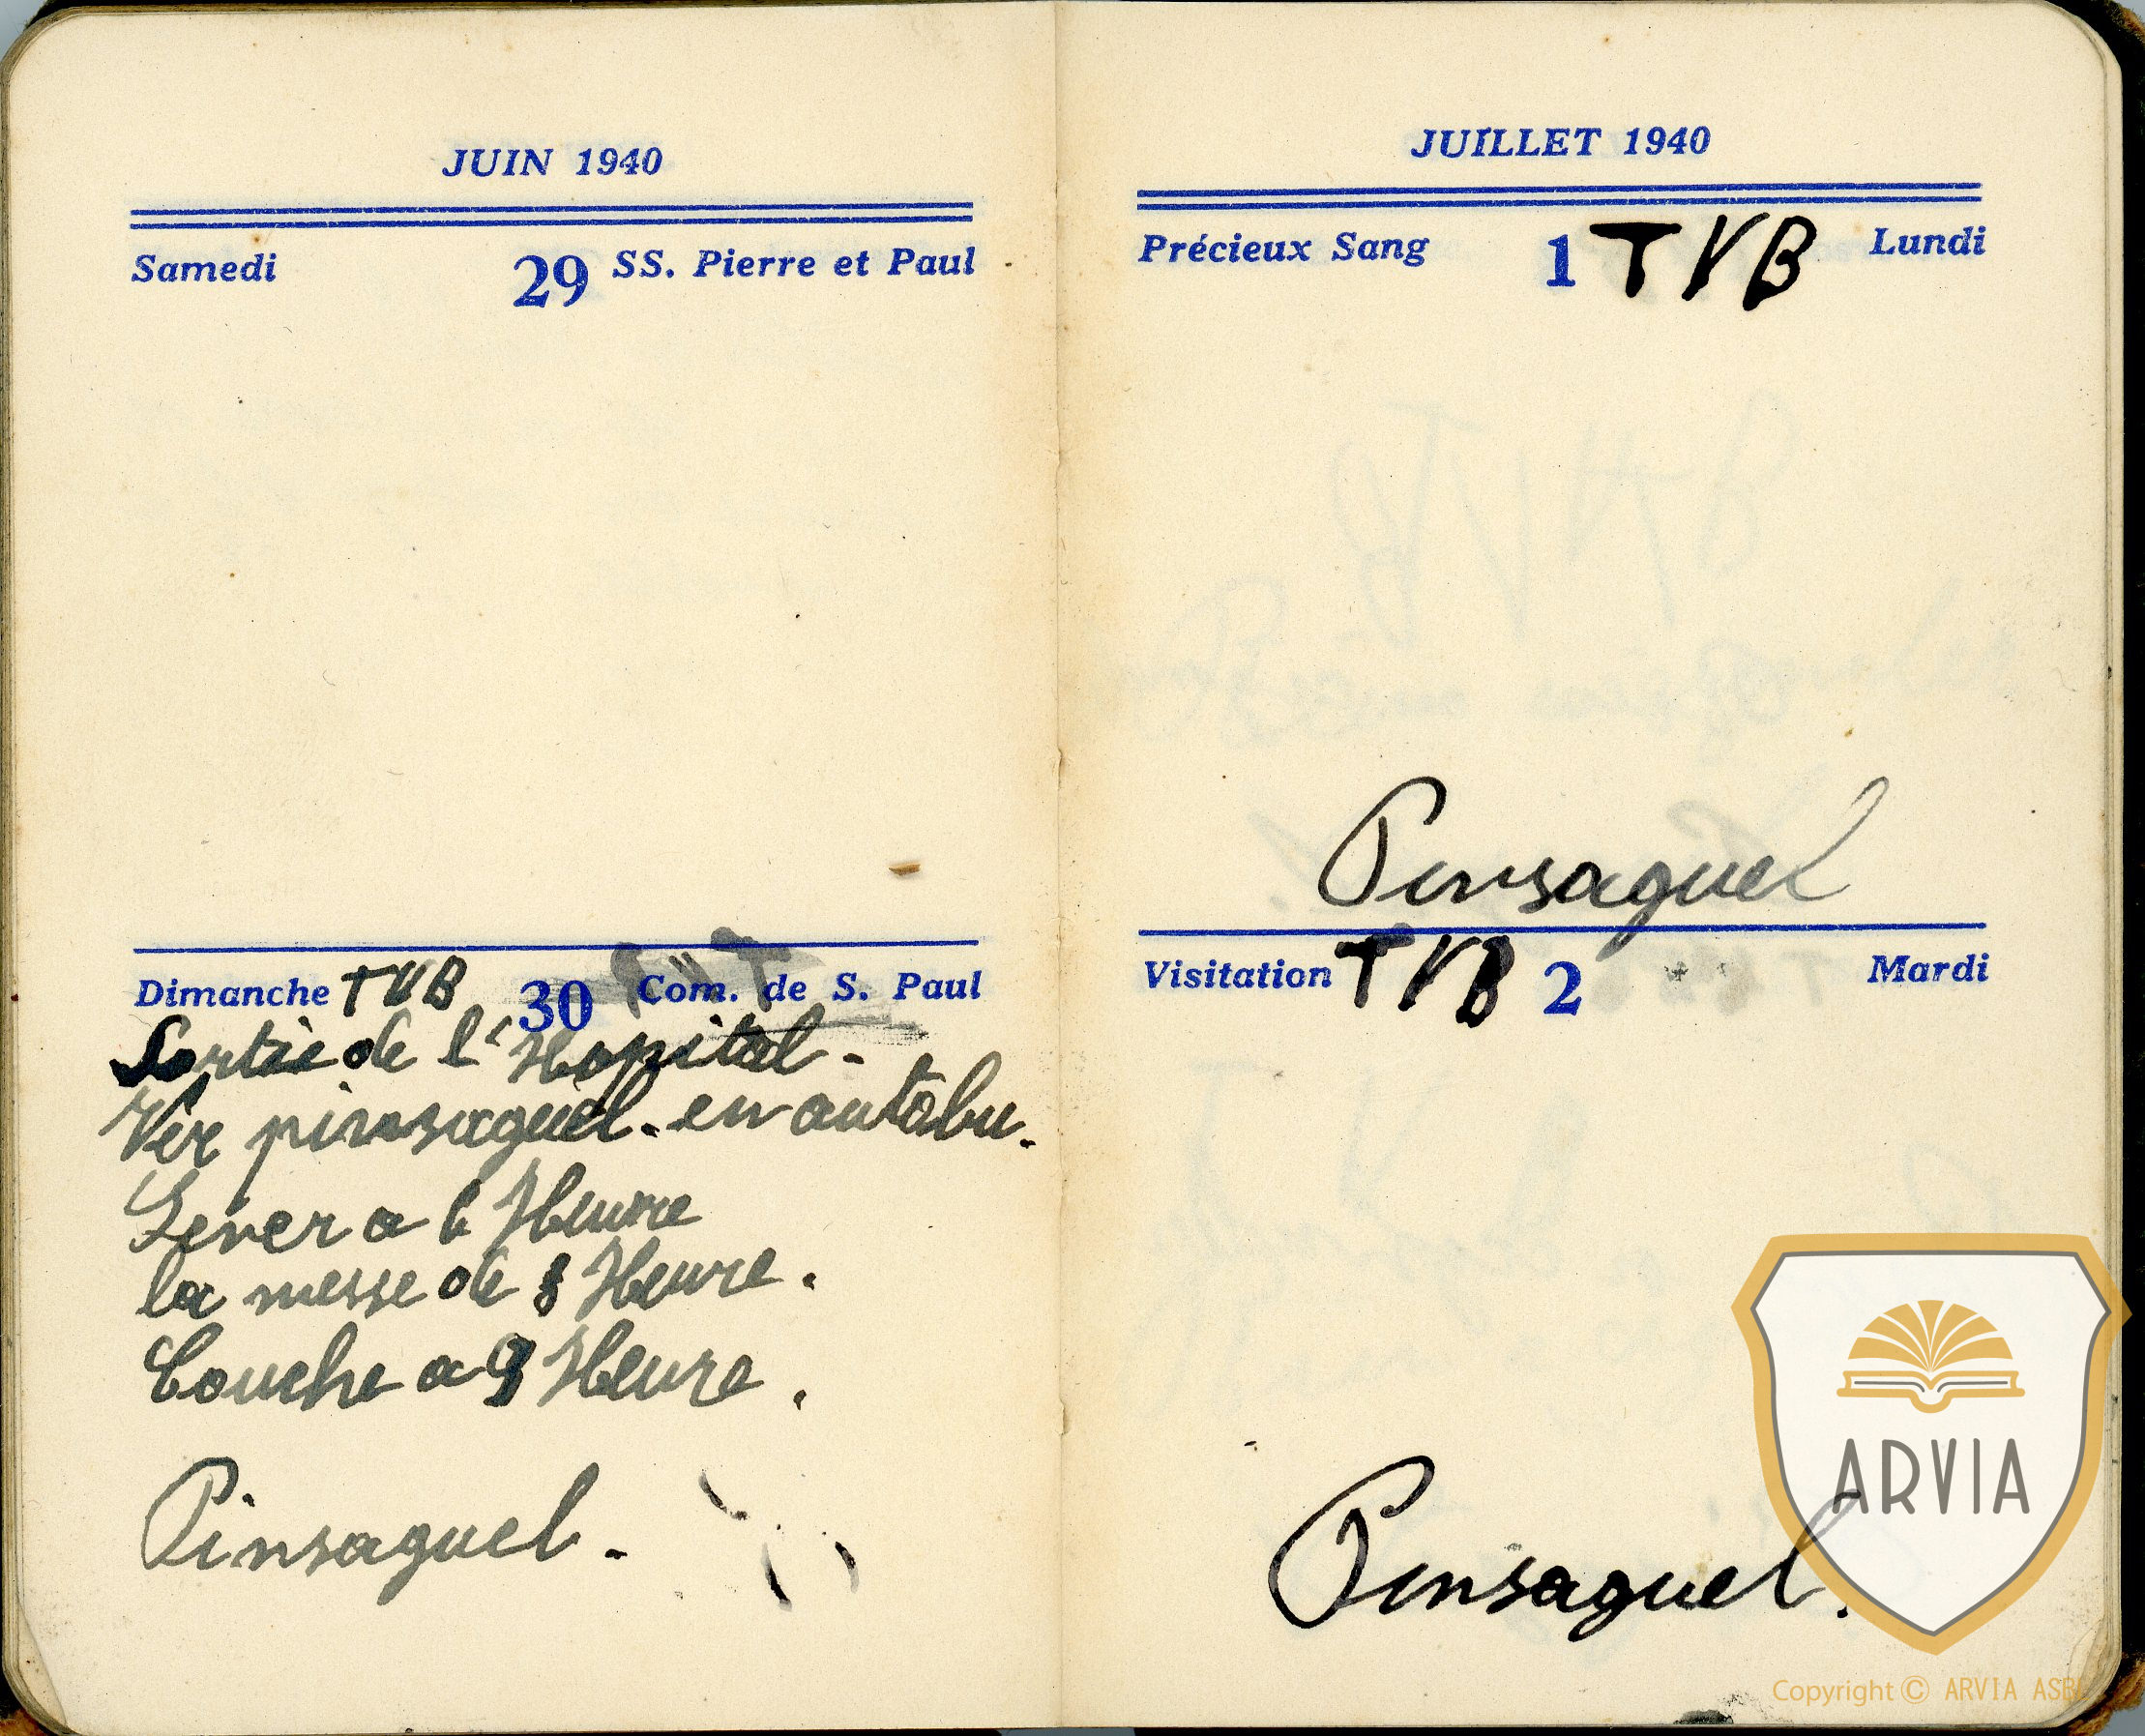 JUIN 1940
Samedi 29 SS. Pierre et Paul
Dimanche TVB 30 Com. de S. Paul
Sortie de l'Hopital -
Ver pinsaguel. en autobu.
Lever a 6 Heure
la messe de 8 Heure.
Couche a 9 Heure.
Pinsaguel.
JUILLET 1940
Précieux Sang 1 TVB Lundi
Pinsaguel
Visitation TVB 2 Mardi
Pinsaguel.
ARVIA
Copyright © ARVIA ASB